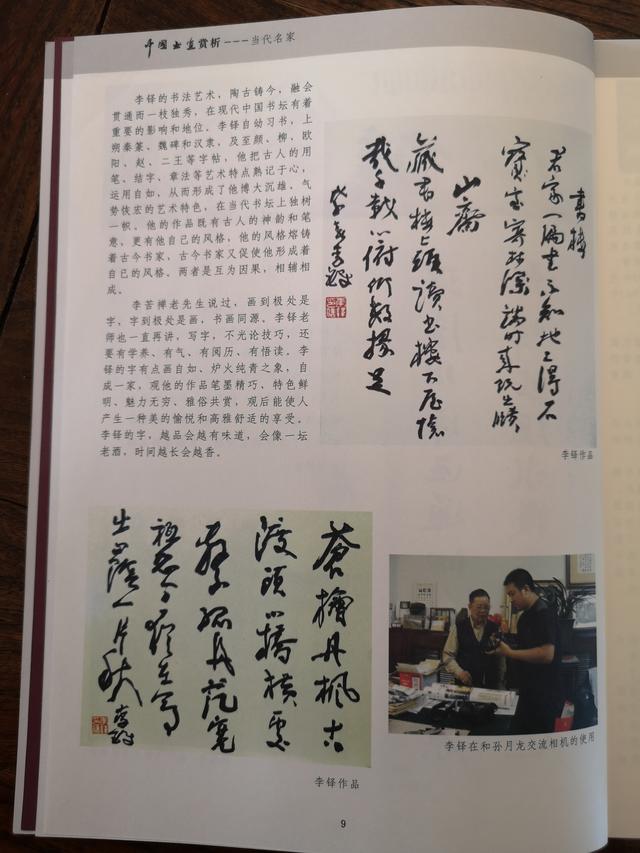 中国书画赏析---当代名家
李铎的书法艺术，陶古铸今，融会
贯通而一枝独秀，在现代中国书坛有着
重要的影响和地位。李铎自幼习书，上
朔秦篆、魏碑和汉隶，及至颜、柳、欧
阳、赵、二王等字帖，他把古人的用
笔、结字、章法等艺术特点熟记于心，
运用自如，从而形成了他博大沉雄、气
势恢宏的艺术特色，在当代书坛上独树
一帜。他的作品既有古人的神韵和笔
意，更有他自己的风格，他的风格熔铸
着古今书家，古今书家又促使他形成着
自已的风格。两者是互为因果，相辅相
成。
李苦禅老先生说过，画到极处是
字，字到极处是画，书画同源。李铎老
师也一直再讲，写字，不光论技巧，还
要有学养、有气、有阅历、有悟读。李
铎的字有点画自如、炉火纯青之象，自
成一家，观他的作品笔墨精巧、特色鲜
明、魅力无穷、雅俗共赏，观后能使人
产生一种美的愉悦和高雅舒适的享受。
李铎的字，越品会越有味道，会像一坛
老酒，时间越长会越香。
書樓
君家一编书不自圯上得石
室寄林深時来玩幽賾
山齋
藏书楼上頭读书楼下屋懷
哉千载心俯仰数椽足
李鐸
李铎作品
蒼檜丹枫古
渡頭小橋横處
繫孤舟范寬
今猶在寫
出山陰一片秋
李鐸
李铎作品
李铎在和孙月龙交流相机的使用
9